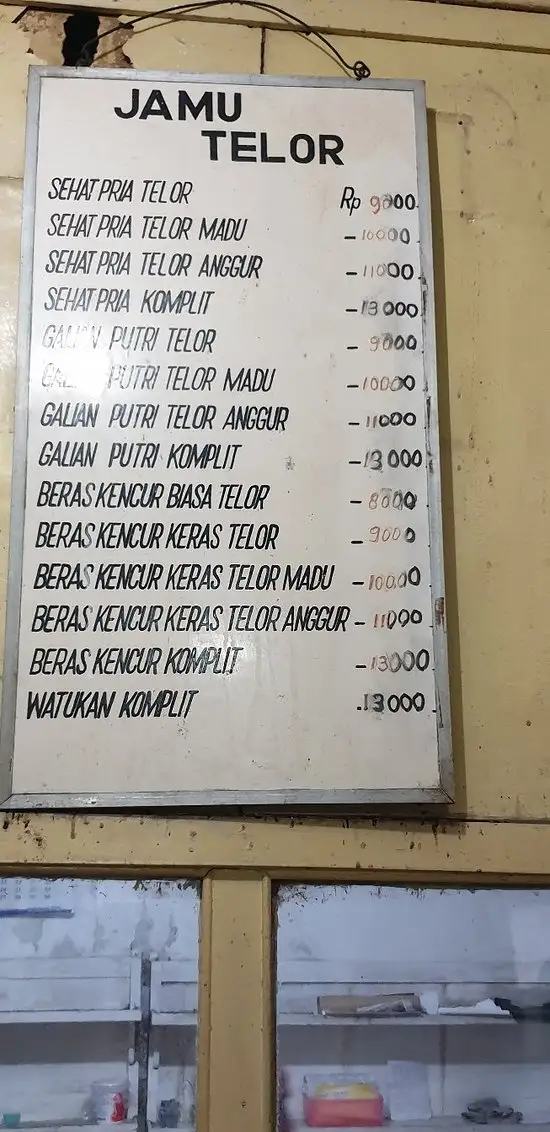 JAMU
TELOR
SEHAT PRIA TELOR Rp 9000.
SEHAT PRIA TELOR MADU - 10000
SEHAT PRIA TELOR ANGGUR - 11000
SEHAT PRIA KOMPLIT - 13000
GALIAN PUTRI TELOR - 9000
GALIAN PUTRI TELOR MADU - 10000
GALIAN PUTRI TELOR ANGGUR - 11000
GALIAN PUTRI KOMPLIT - 13000
BERAS KENCUR BIASA TELOR - 8000
BERAS KENCUR KERAS TELOR - 9000
BERAS KENCUR KERAS TELOR MADU - 10000
BERAS KENCUR KERAS TELOR ANGGUR - 11000
BERAS KENCUR KOMPLIT - 13000
WATUKAN KOMPLIT . 13000